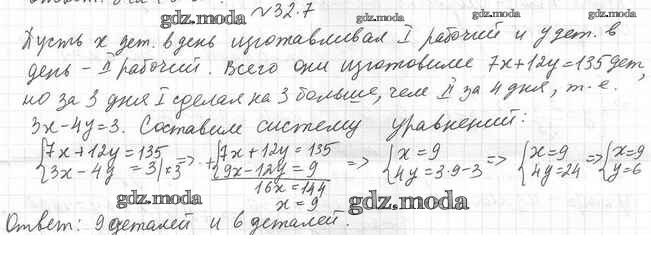 gdz.moda
№32.7
gdz.moda
gdz.moda
Пусть x дет. в день изготавливал I рабочий и y дет. в
день – II рабочий. Всего они изготовили 7x+12y=135 дет,
но за 3 дня I сделал на 3 больше, чем II за 4 дня, т.е.
3x-4y=3. Составим систему уравнений:
{7x+12y=135 => +{7x+12y=135 => {x=9 => {x=9 => {x=9
{3x-4y=3|×3 {9x-12y=9 {4y=3·9-3 {4y=24 {y=6
16x=144
x=9
gdz.moda
gdz.moda
gdz.moda
Ответ: 9 деталей и 6 деталей.